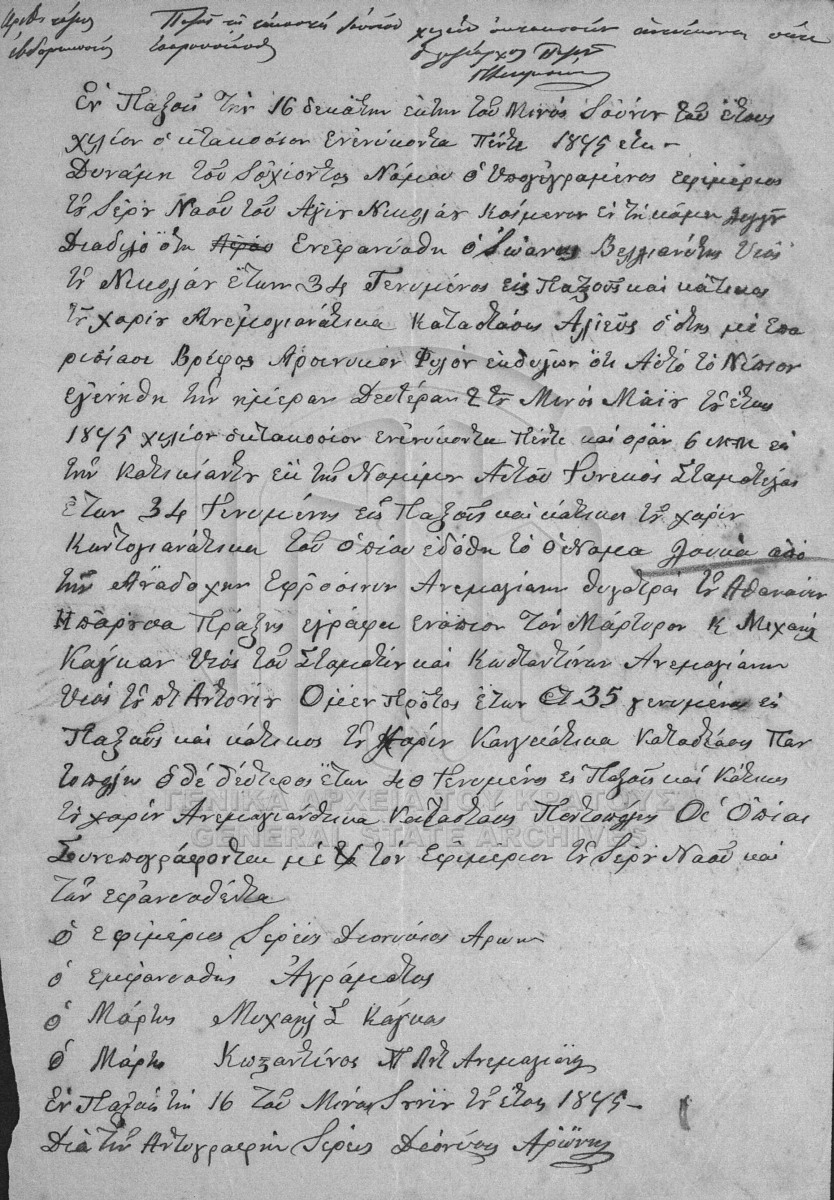 Αριθ
εβδομηκοστή
Παξοί τη εικοστή Ιουνίου χιλίου οκτακοσίου ενενήκοντα πέντε
Εν Παξοίς την 16 δεκάτην εκτην του Μινός Ιουνίου του έτους
χιλίον οκτακοσίον ενενύκοντα Πέντε 1895 ετη -
Δυνάμη του Ισχίοντος Νόμου ο Υπογεγραμένος εφιμέριος
του Ιερού Ναού του Αγίου Νικολάου Κοίμενον εις τη κόμη
Διαδιλό ότη Ενεφανίσθη ο Ιωάνης Βελλιανίτης Υιός
του Νικολάου έτων 34 Γενυμένος εις Παξούς και κάτικος
του χορίου Ανεμογιανάτικα Καταστάσης Αλιεύς όστης με επα
ρισίασε Βρέφος Αρσενικόν Φυλόν εκδυλων ότι Αυτό το Νίπιον
εγενήθη την ημέραν Δευτέραν 2 του Μινός Μαίου του έτους
1895 χιλίον οκτακοσίον ενενύκοντα Πέντε και οραν 6 μ.μ εις
την κατικίαντου εκ της Νομίμου Αυτού Γυνεκός Σταματέλας
ετων 34 Γενυμένης εις Παξούς και κάτικη του χορίου
Κοντογιανάτικα του οπίου εδόθη το όνομα Λουκά από
την Ανάδοχην Εφροσίνην Ανεμογιάνη θυγατραι του Αθανασίου
Η παρούσα Πράξης εγράφη ενόπιον τον Μάρτυρον κ Μιχαήλ
Κάγκαν Υιός του Σταματίου και Κωσταντίνου Ανεμογιάνη
Υιός του ποτ Αντονίου Ο μεν Πρότος έτων 35 γενυμένος εις
Παξούς και κάτικος του χορίου Καγκάτικα Καταστάσης Παν
τοπόλης ο δε δέφτερος έτων 40 Γενυμένος εις Παξούς και Κάτικος
του χορίου Ανεμογιανάτικα Κατάστασης Παντοπόλης Οι Οπίοι
Συνεπογράφονται με τον Εφιμέριον του Ιερού Ναού και
τον εφανισθέντα
ο εφιμέριος Ιερεύς Διονύσιος Αρώνης
ο εμφανισθής Αγράματος
ο Μάρτης Μιχαήλ Σ Κάγκας
ο Μάρτης Κωσταντίνος Π Αντ Ανεμογιάνης
Εν Παξοίς τη 16 του Μινός Ιουνίου του έτους 1895 -
Δια την Αντιγραφήν Ιερεύς Διονύσιος Αρώνης
ΓΕΝΙΚΑ ΑΡΧΕΙΑ ΤΟΥ ΚΡΑΤΟΥΣ
GENERAL STATE ARCHIVES